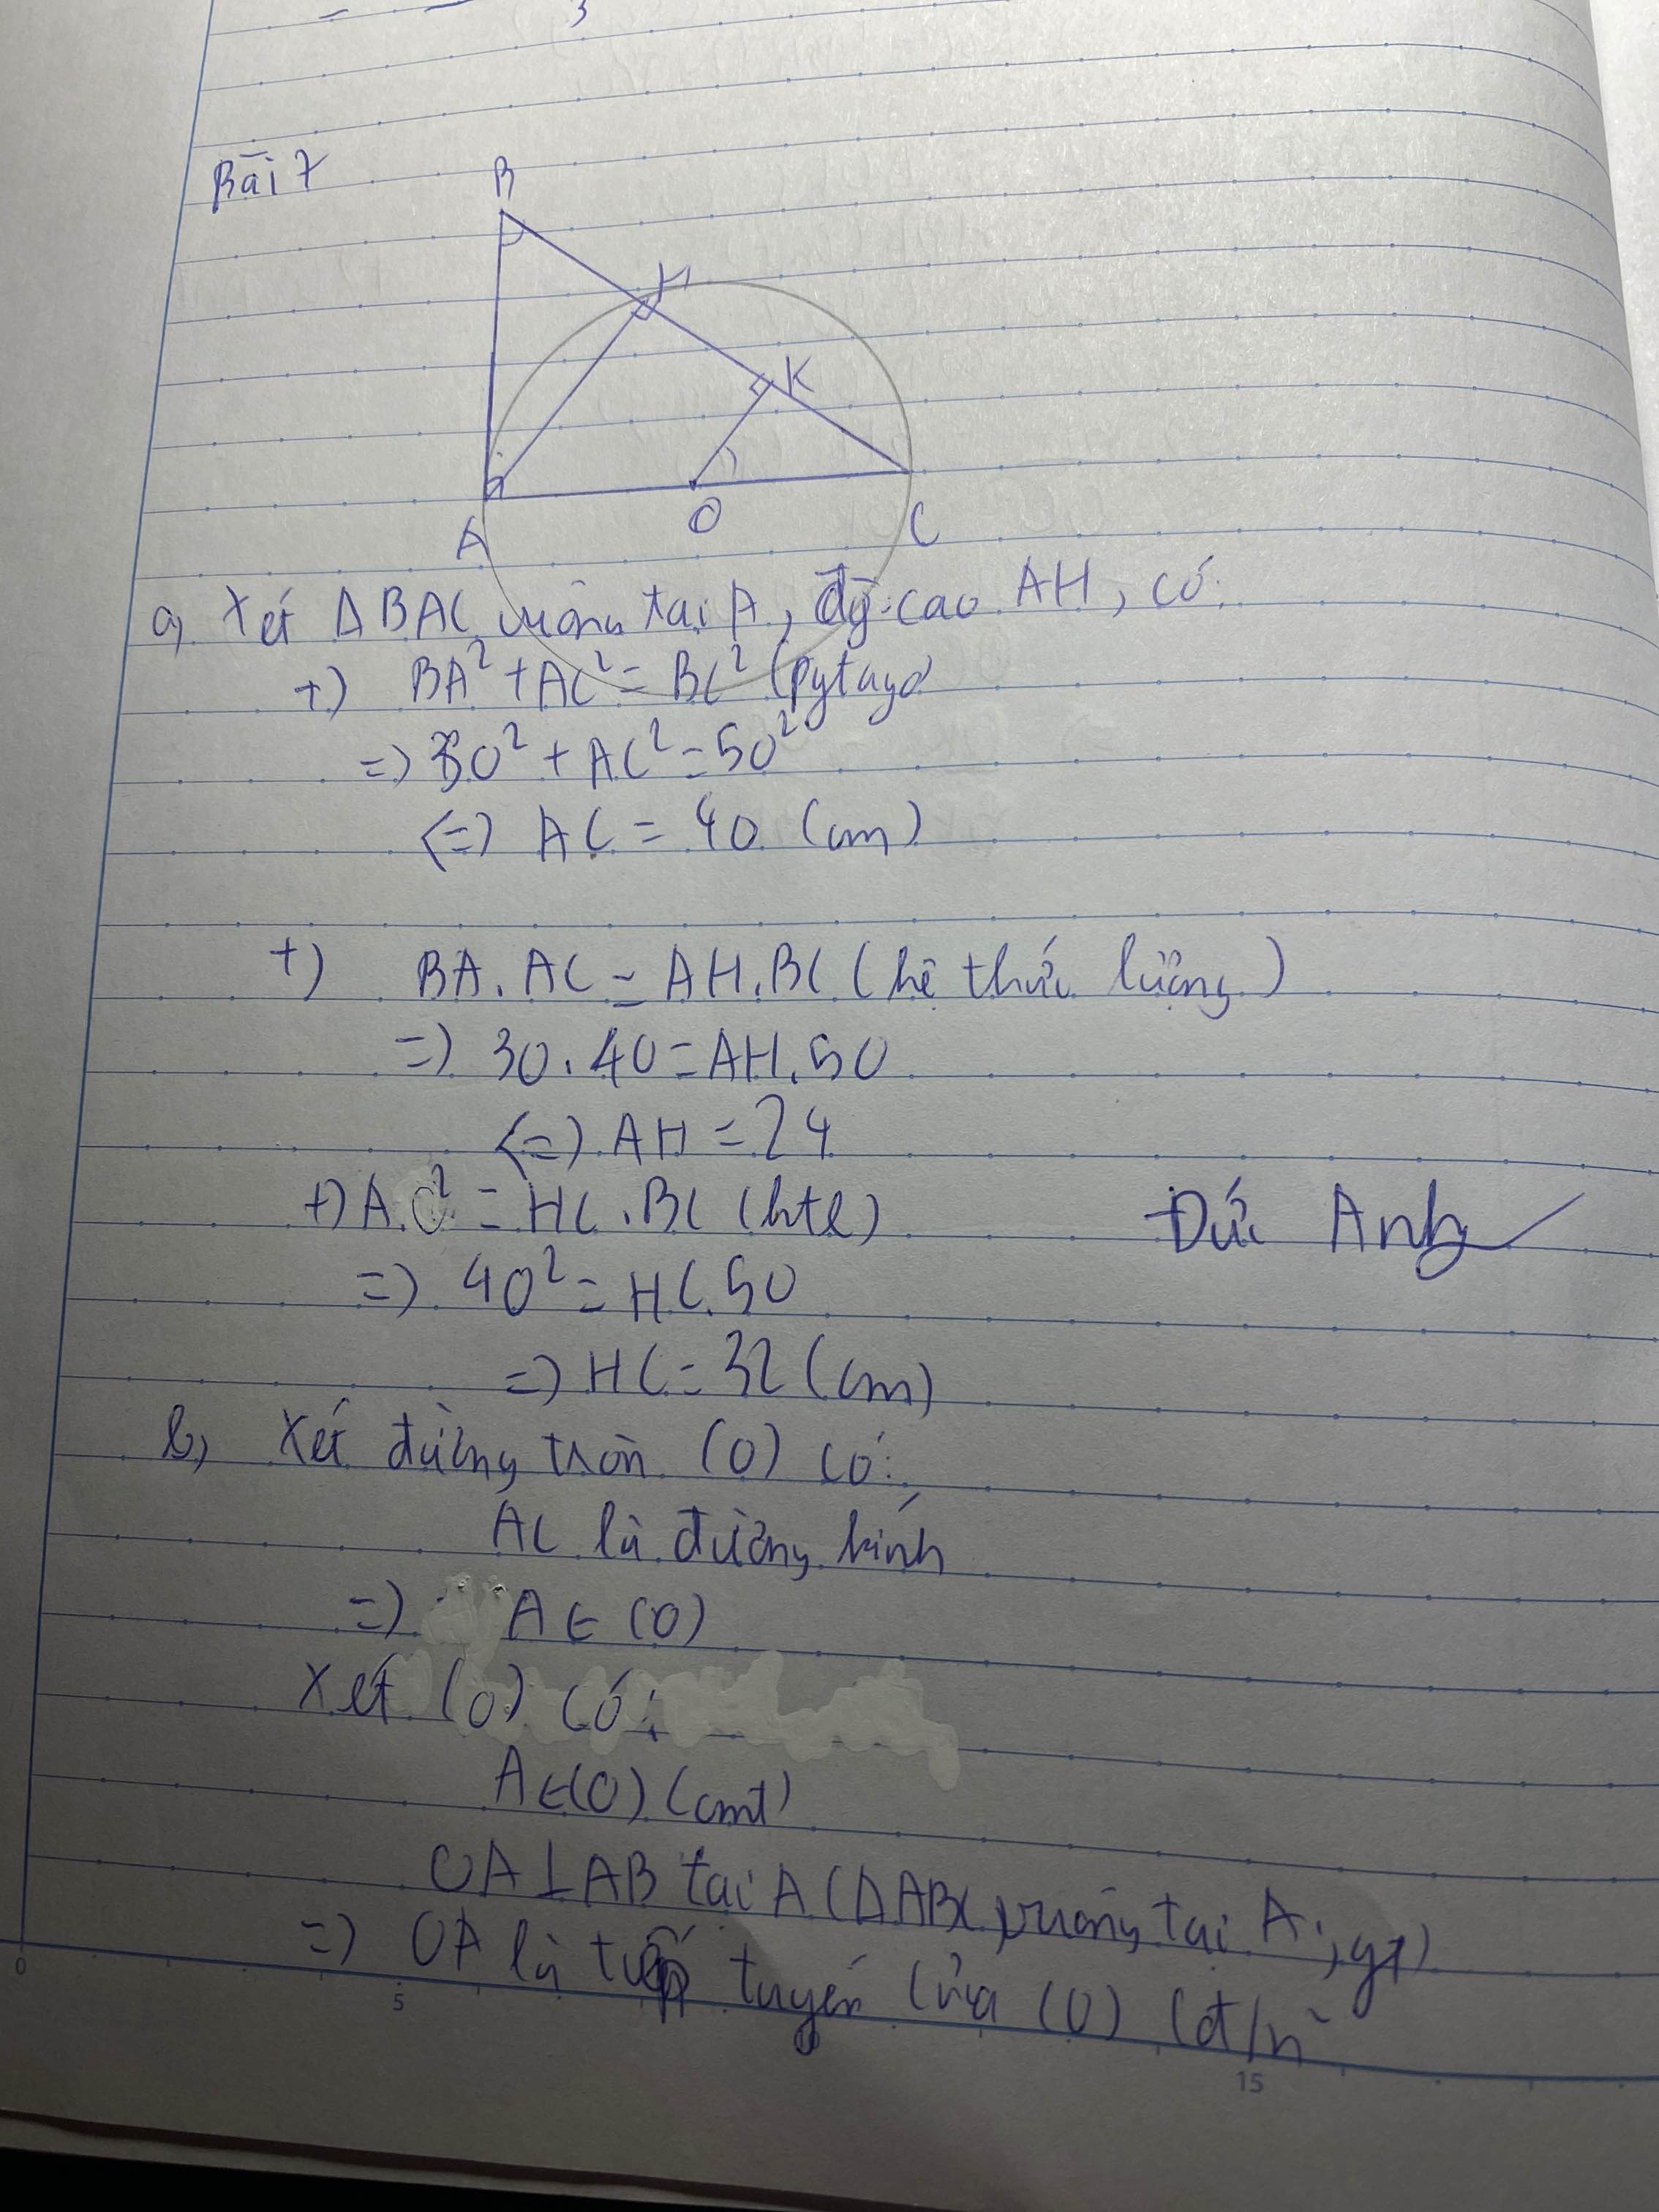 Bài 7
B
H
K
A
O
C
a, Xét ΔBAC vuông tại A, đg cao AH, có:
+) BA² + AC² = BC² (pytago
=> 30² + AC² = 50²
<=> AC = 40 (cm)
+) BA. AC = AH. BC (hệ thức lượng)
=> 30. 40 = AH. 50
<=> AH = 24
+) AC² = HC. BC (htl)
Đức Anh
=> 40² = HC. 50
=> HC = 32 (cm)
b, Xét đường tròn (O) có:
AC là đường kính
=> A ∈ (O)
Xét (O) có:
A ∈ (O) (cmt)
OA ⊥ AB tại A (ΔABC vuông tại A, gt)
=> OA là tiếp tuyến của (O) (đ/n
0
5
15